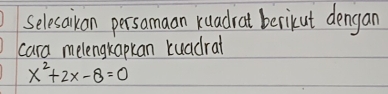 Selesaikan persamaan kuadrat berikut dengan
cara melengkapkan kuadrat
x²+2x-8=0